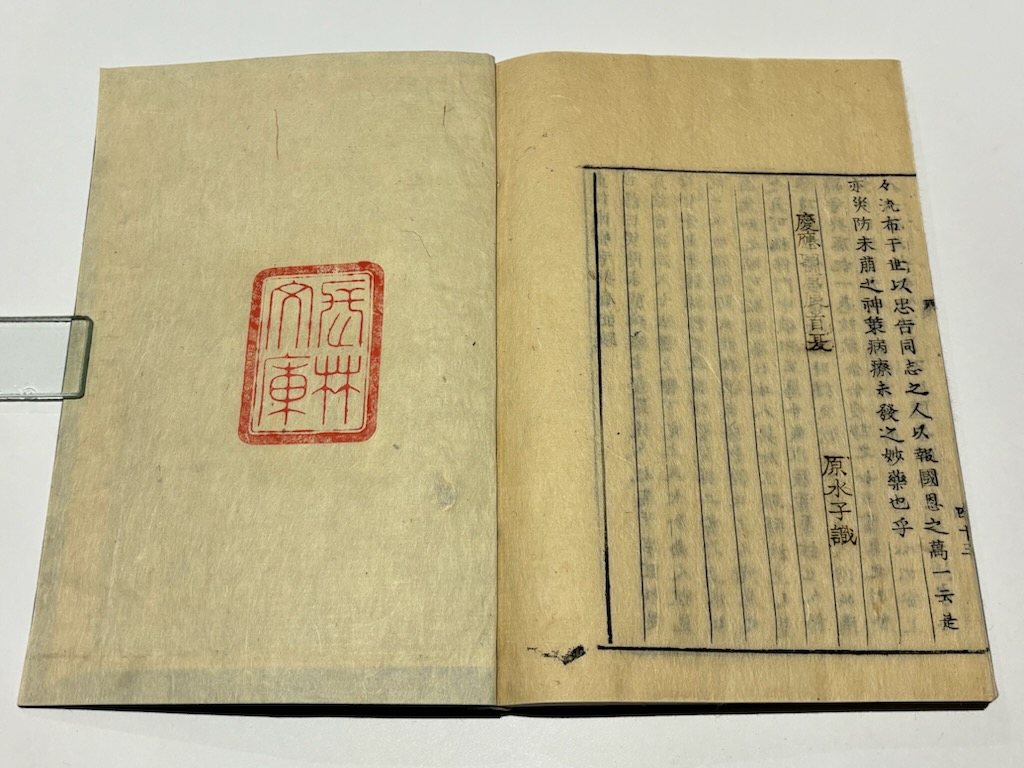 々流布于世以忠告同志之人以報國恩之萬一云是
亦災防未萠之神策病療未發之妙藥也乎
慶應首夏
原水子識
四十三
林
文庫